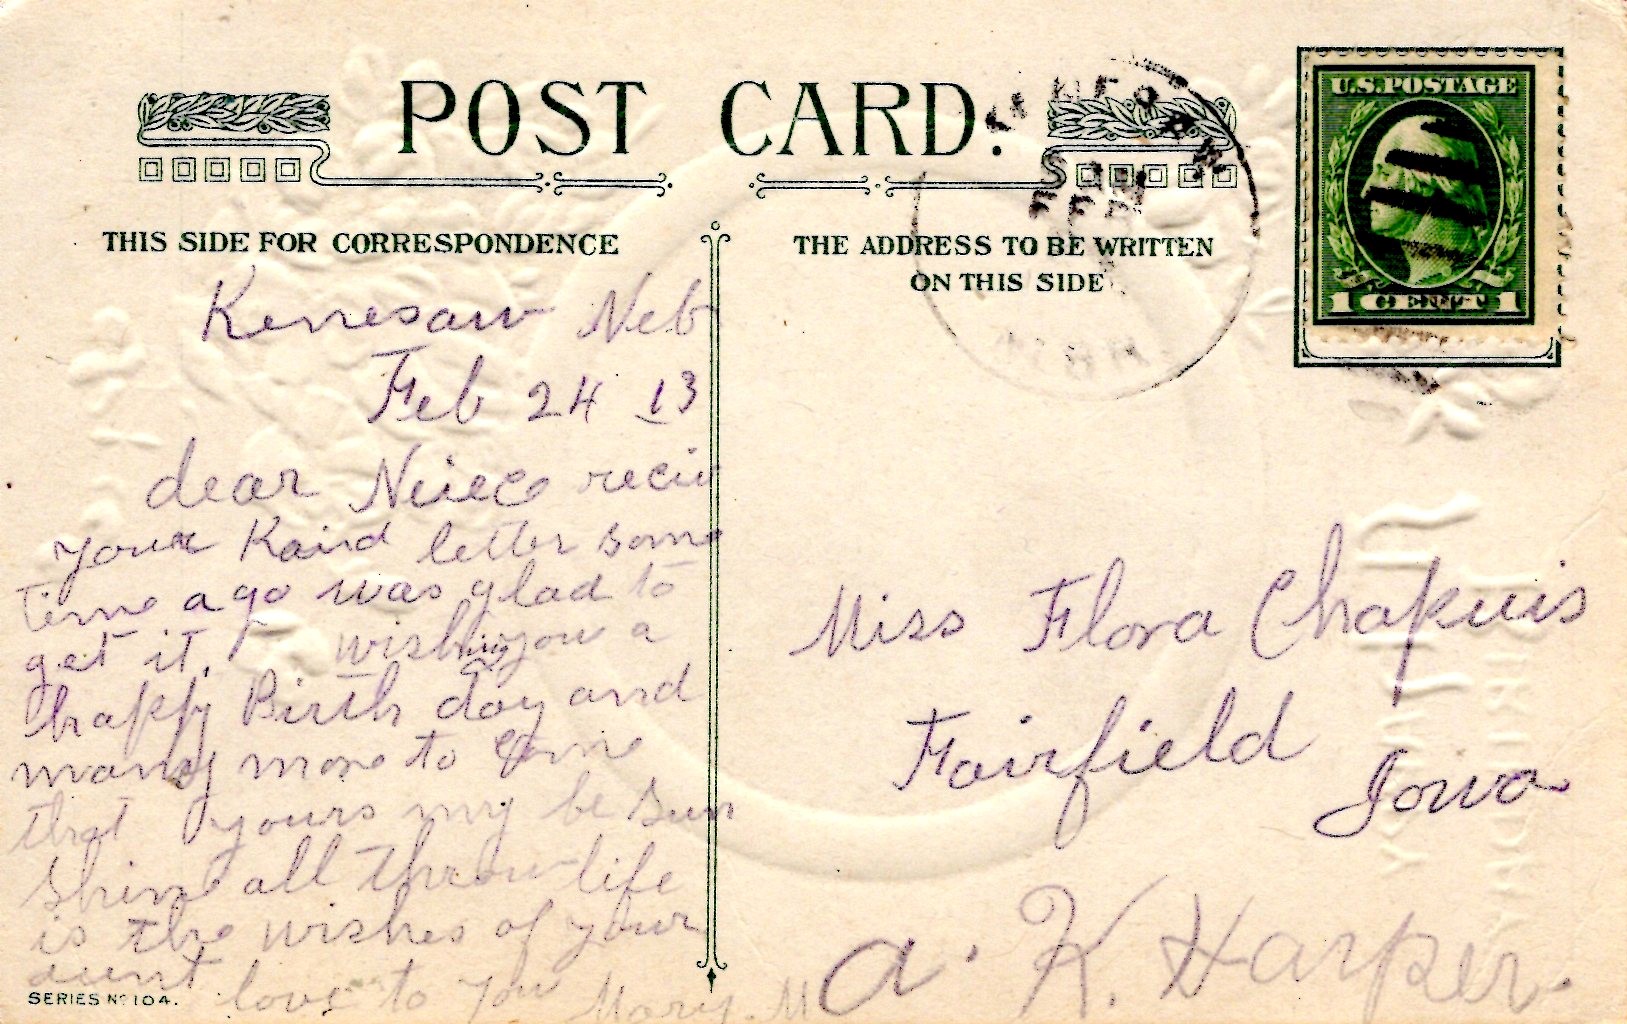 POST CARD.
THIS SIDE FOR CORRESPONDENCE
THE ADDRESS TO BE WRITTEN
ON THIS SIDE
U.S. POSTAGE
1 CENT 1
FEB
Kenesaw Neb
Feb 24 13
dear Neiece reciv
your Kaind letter some
time ago was glad to
get it. wishing you a
happy Birth day and
many more to Come
that yours my be Sun
Shine all throu life
is the wishes of your
aunt love to you Mary. M
SERIES No 104.
Miss Flora Chapuis
Fairfield
Iowa
a. K. Harper.